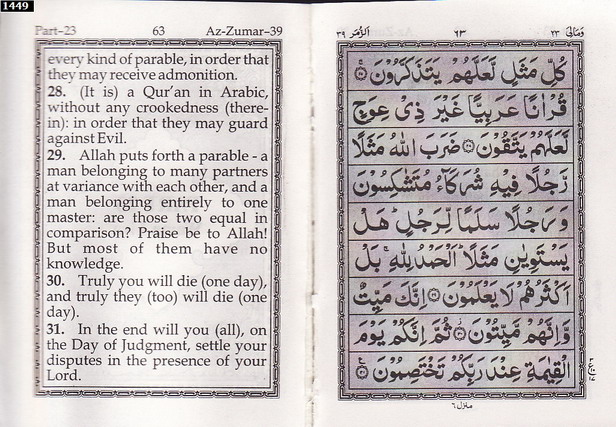 1449
Part-23 63 Az-Zumar-39
every kind of parable, in order that
they may receive admonition.
28. (It is) a Qur'an in Arabic,
without any crookedness (there-
in): in order that they may guard
against Evil.
29. Allah puts forth a parable - a
man belonging to many partners
at variance with each other, and a
man belonging entirely to one
master: are those two equal in
comparison? Praise be to Allah!
But most of them have no
knowledge.
30. Truly you will die (one day),
and truly they (too) will die (one
day).
31. In the end will you (all), on
the Day of Judgment, settle your
disputes in the presence of your
Lord.
الزُّمَر ٣٩ ٦٣ وَمَالِیَ ٢٣
كُلِّ مَثَلٍ لَّعَلَّهُمْ يَتَذَكَّرُوْنَ ۝٢٧
قُرْاٰنًا عَرَبِيًّا غَيْرَ ذِىْ عِوَجٍ
لَّعَلَّهُمْ يَتَّقُوْنَ ۝٢٨ ضَرَبَ اللّٰهُ مَثَلًا
رَّجُلًا فِيْهِ شُرَكَآءُ مُتَشٰكِسُوْنَ
وَ رَجُلًا سَلَمًا لِّرَجُلٍ ؕ هَلْ
يَسْتَوِيٰنِ مَثَلًا ؕ اَلْحَمْدُ لِلّٰهِ ۚ بَلْ
اَكْثَرُهُمْ لَا يَعْلَمُوْنَ ۝٢٩ اِنَّكَ مَيِّتٌ
وَّاِنَّهُمْ مَّيِّتُوْنَ ۝٣٠ ثُمَّ اِنَّكُمْ يَوْمَ
الْقِيٰمَةِ عِنْدَ رَبِّكُمْ تَخْتَصِمُوْنَ ۝٣١
منزل ٦